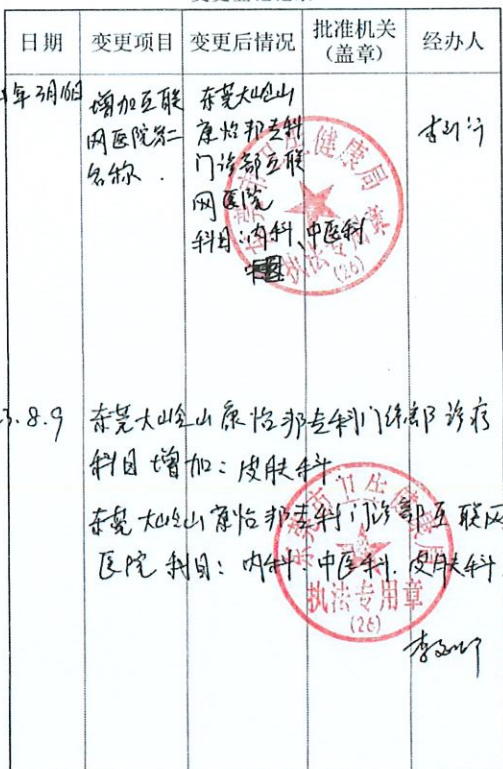 日期 变更项目 变更后情况 批准机关 经办人
(盖章)
年3月16日
增加互联
网医院第二
名称.
东莞大岭山
康怡邦专科
门诊部互联
网医院
科目:内科、中医科
东莞市卫生健康局
执法专用章
(26)
.8.9 东莞大岭山康怡邦专科门诊部诊疗
科目增加:皮肤科
东莞大岭山康怡邦专科门诊部互联网
医院科目:内科、中医科、皮肤科
东莞市卫生健康局
执法专用章
(26)